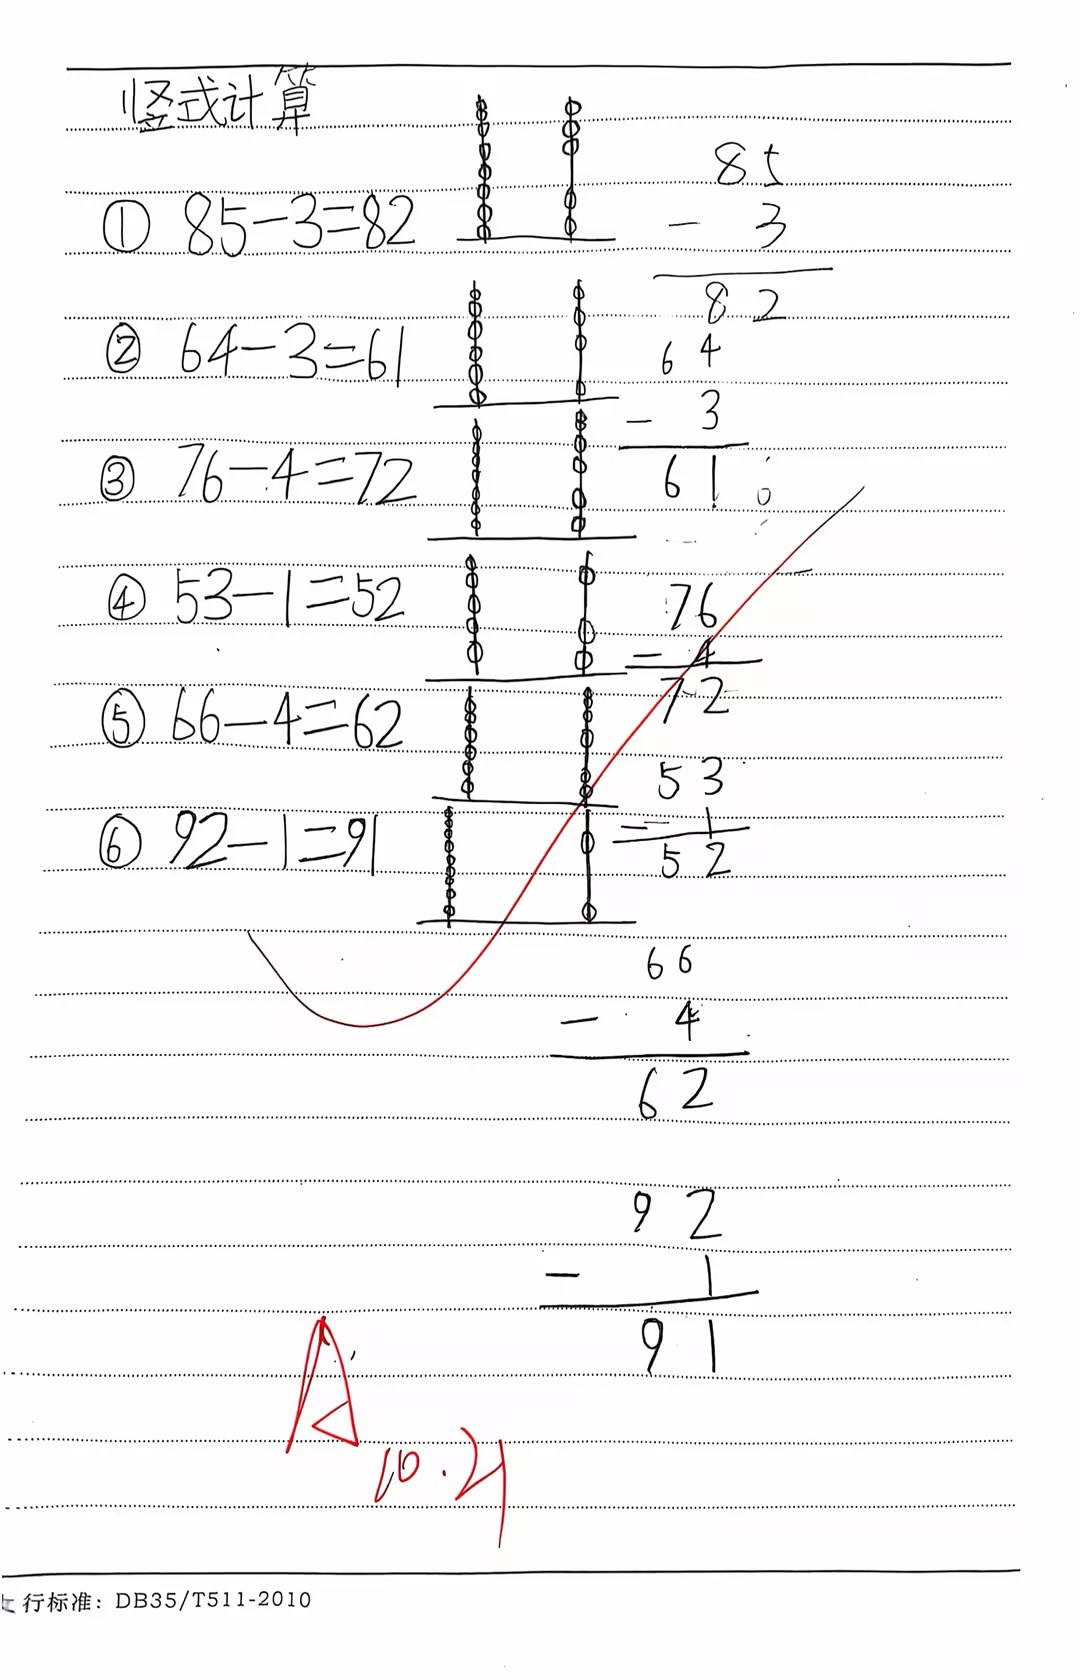 竖式计算
① 85-3=82
② 64-3=61
③ 76-4=72
④ 53-1=52
⑤ 66-4=62
⑥ 92-1=91
85
- 3
82
64
- 3
61
76
- 4
72
53
- 1
52
66
- 4
62
92
- 1
91
A
10.21
行标准：DB35/T511-2010